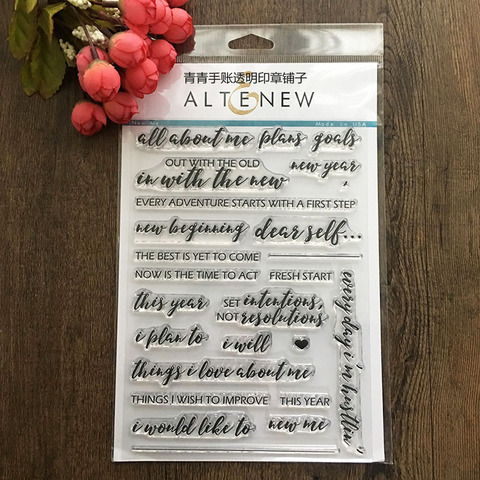 青青手账透明印章铺子
ALTENEW
New Me
Made in USA
all about me plans goals
OUT WITH THE OLD
new year
in with the new
EVERY ADVENTURE STARTS WITH A FIRST STEP
new beginning dear self...
THE BEST IS YET TO COME
NOW IS THE TIME TO ACT FRESH START
this year
SET intentions,
NOT resolutions
i plan to
i will
things i love about me
THINGS I WISH TO IMPROVE THIS YEAR
i would like to
new me
every day i'm hustlin'